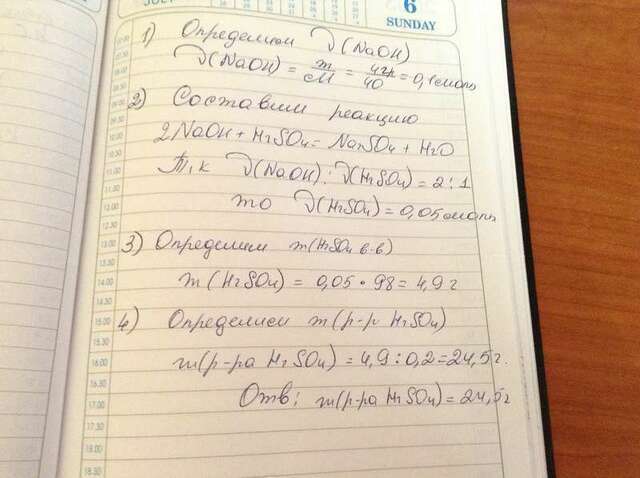 JULY
6
SUNDAY
1) Определяем ν(NaOH)
ν(NaOH) = m/M = 4гр/40 = 0,1 моль
2) Составим реакцию
2NaOH + H2SO4 = Na2SO4 + H2O
Т.к ν(NaOH) : ν(H2SO4) = 2 : 1
то ν(H2SO4) = 0,05 моль
3) Определяем m(H2SO4 в-в)
m(H2SO4) = 0,05 • 98 = 4,9 г
4) Определяем m(р-р H2SO4)
m(р-ра H2SO4) = 4,9 : 0,2 = 24,5 г.
Отв: m(р-ра H2SO4) = 24,5 г
07.00
07.30
08.00
08.30
09.00
09.30
10.00
10.30
11.00
11.30
12.00
12.30
13.00
13.30
14.00
14.30
15.00
15.30
16.00
16.30
17.00
17.30
18.00
18.30